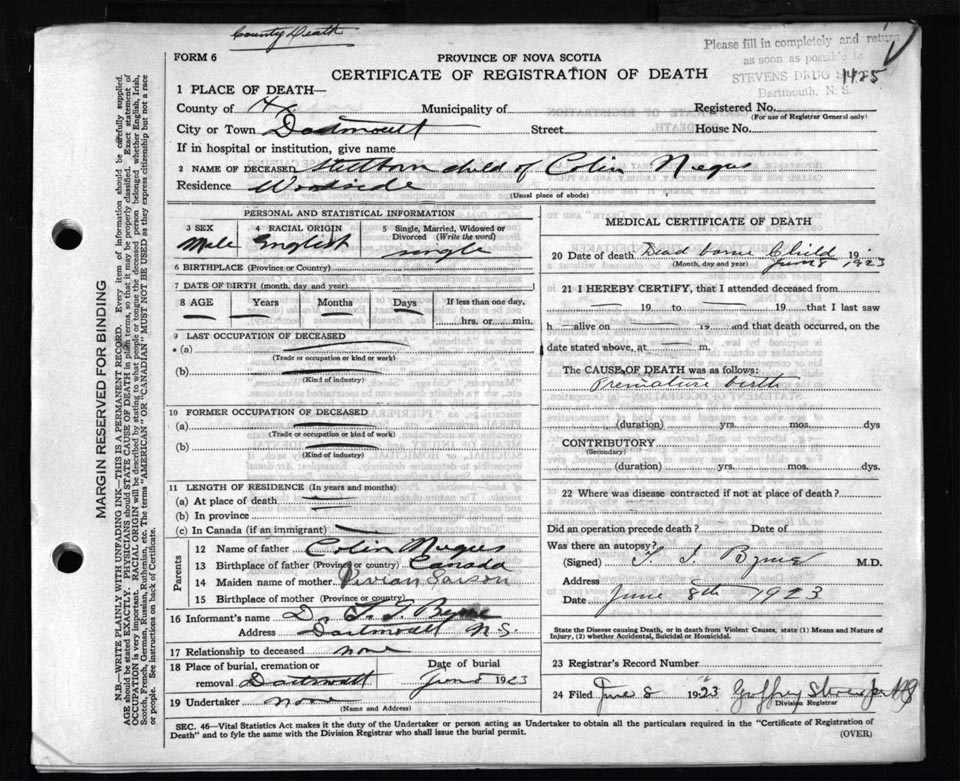 County Death
Please fill in completely and return
as soon as possible to
STEVENS DRUG
Dartmouth, N. S.
1425
FORM 6
PROVINCE OF NOVA SCOTIA
CERTIFICATE OF REGISTRATION OF DEATH
1 PLACE OF DEATH—
County of Hx Municipality of Registered No.
(For use of Registrar General only)
City or Town Dartmouth Street House No.
If in hospital or institution, give name
2 NAME OF DECEASED Stillborn child of Colin Negus
Residence Woodside
(Usual place of abode)
PERSONAL AND STATISTICAL INFORMATION
3 SEX 4 RACIAL ORIGIN 5 Single, Married, Widowed or Divorced (Write the word)
Male English single
6 BIRTHPLACE (Province or Country)
7 DATE OF BIRTH (month, day and year)
8 AGE Years Months Days If less than one day,
hrs. or min.
9 LAST OCCUPATION OF DECEASED
(a)
(Trade or occupation or kind or work)
(b)
(Kind of industry)
10 FORMER OCCUPATION OF DECEASED
(a)
(Trade or occupation or kind of work)
(b)
(Kind of industry)
11 LENGTH OF RESIDENCE (In years and months)
(a) At place of death
(b) In province
(c) In Canada (if an immigrant)
Parents
12 Name of father Colin Negus
13 Birthplace of father (Province or country) Canada
14 Maiden name of mother Vivian
15 Birthplace of mother (Province or country)
16 Informant's name Dr Byrne
Address Dartmouth N.S.
17 Relationship to deceased none
18 Place of burial, cremation or Date of burial
removal Dartmouth June 8 1923
19 Undertaker none
(Name and Address)
MEDICAL CERTIFICATE OF DEATH
20 Date of death Dead borne Child 19
(Month, day and year) June 8 1923
21 I HEREBY CERTIFY, that I attended deceased from
19 to 19 that I last saw
h alive on 19 and that death occurred, on the
date stated above, at m.
The CAUSE OF DEATH was as follows:
Premature birth
(duration) yrs. mos. dys
CONTRIBUTORY
(Secondary)
(duration) yrs. mos. dys.
22 Where was disease contracted if not at place of death?
Did an operation precede death? Date of
Was there an autopsy?
(Signed) Byrne M.D.
Address
Date June 8th 1923
State the Disease causing Death, or in death from Violent Causes, state (1) Means and Nature of
Injury, (2) whether Accidental, Suicidal or Homicidal.
23 Registrar's Record Number
24 Filed June 8 1923
Division Registrar
SEC. 46—Vital Statistics Act makes it the duty of the Undertaker or person acting as Undertaker to obtain all the particulars required in the "Certificate of Registration of
Death" and to fyle the same with the Division Registrar who shall issue the burial permit.
(OVER)
MARGIN RESERVED FOR BINDING
N.B.—WRITE PLAINLY WITH UNFADING INK—THIS IS A PERMANENT RECORD. Every item of information should be carefully supplied.
AGE should be stated EXACTLY. PHYSICIANS should STATE CAUSE OF DEATH in plain terms, so that it may be properly classified. Exact statement of
OCCUPATION is very important. RACIAL ORIGIN will be described by stating to what people or tongue the deceased person belonged whether English, Irish,
Scotch, French, German, Russian, Ruthenian, etc. The terms "AMERICAN" OR "CANADIAN" MUST NOT BE USED as they express citizenship but not a race
or people. See instructions on back of Certificate.